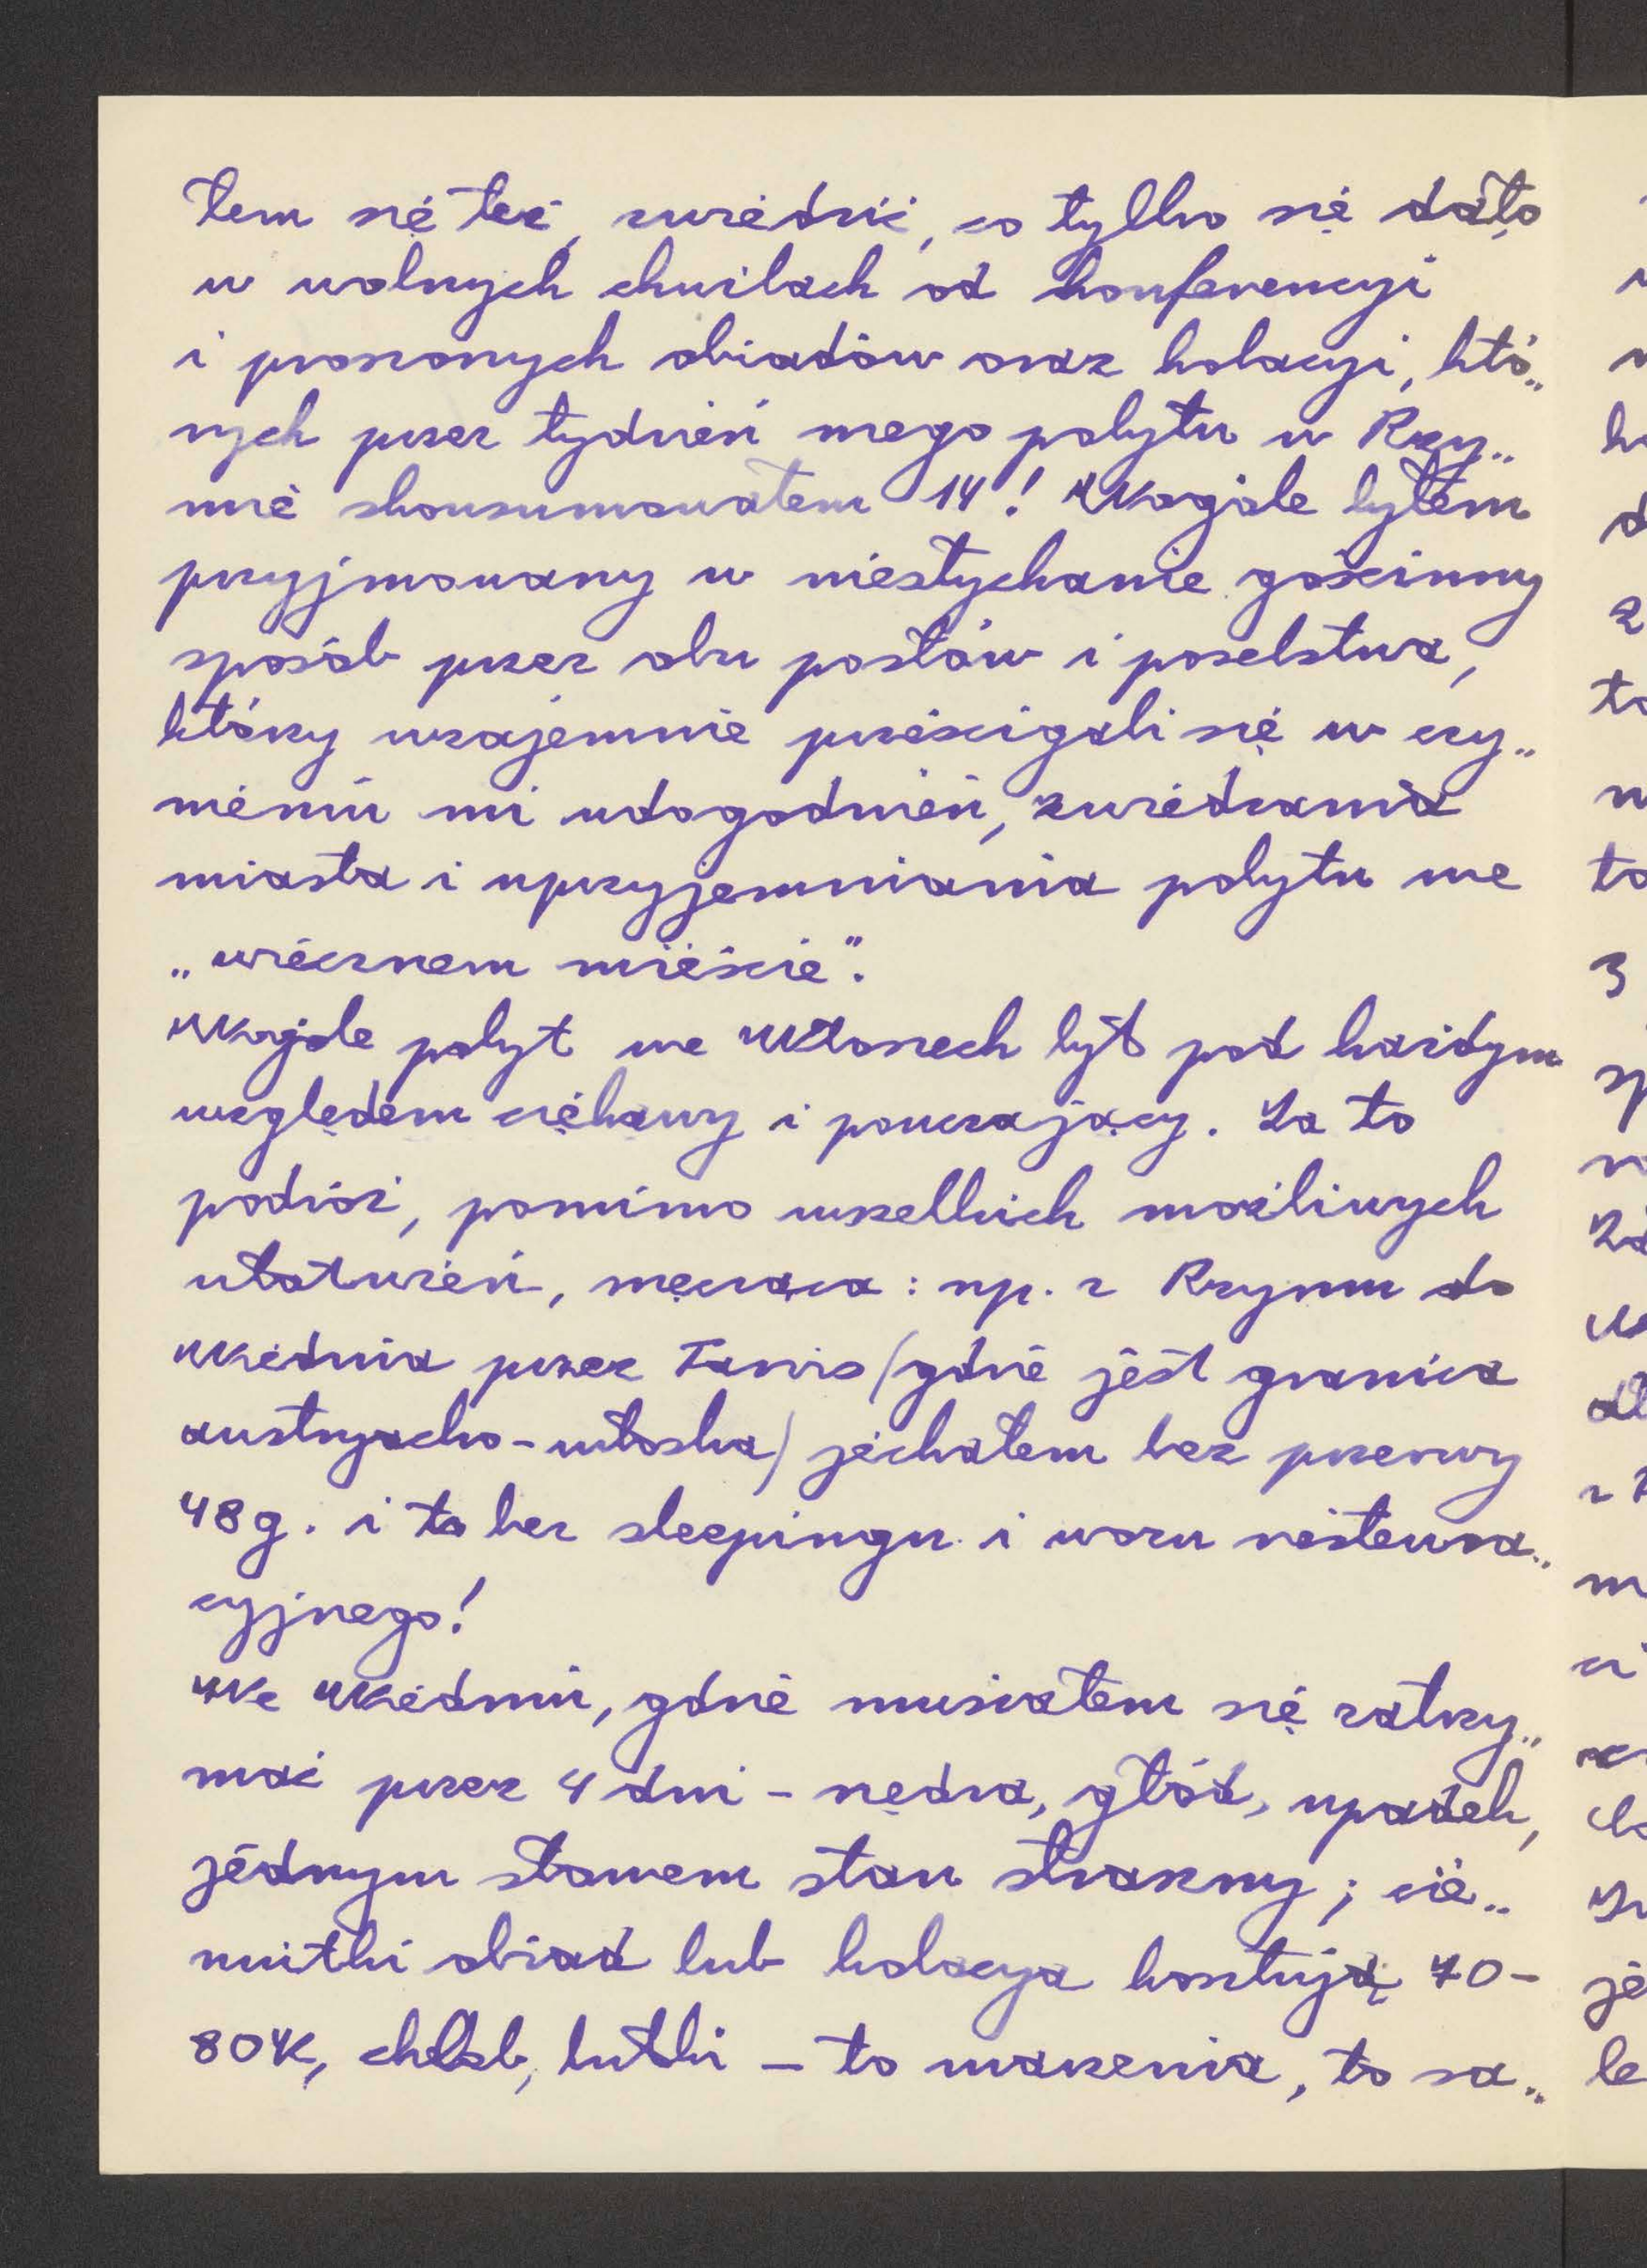 łem się też, zwiedzić, co tylko się dało
w wolnych chwilach od konferencyi
i proszonych obiadów oraz kolacyi, któ„
rych przez tydzień mego pobytu w Rzy„
mie skonsumowałem 14! Wogóle byłem
przyjmowany w niesłychanie gościnny
sposób przez obu posłów i poselstwa,
którzy wzajemnie prześcigali się w czy„
nieniu mi udogodnień, zwiedzania
miasta i uprzyjemniania pobytu we
„wiecznem mieście".
Wogóle pobyt we Włoszech był pod każdym
względem ciekawy i pouczający. Za to
podróż, pomimo wszelkich możliwych
ułatwień, męcząca: np. z Rzymu do
Wiednia przez Tarvis (gdzie jest granica
austryacko-włoska) jechałem bez przerwy
48 g. i to bez sleepingu i wozu restaura„
cyjnego!
We Wiedniu, gdzie musiałem się zatrzy„
mać przez 4 dni - nędza, głód, upadek,
jednym słowem stan straszny; cie„
niutki obiad lub kolacya kosztują 70-
80K, chleb, bułki - to marzenia, to sa„